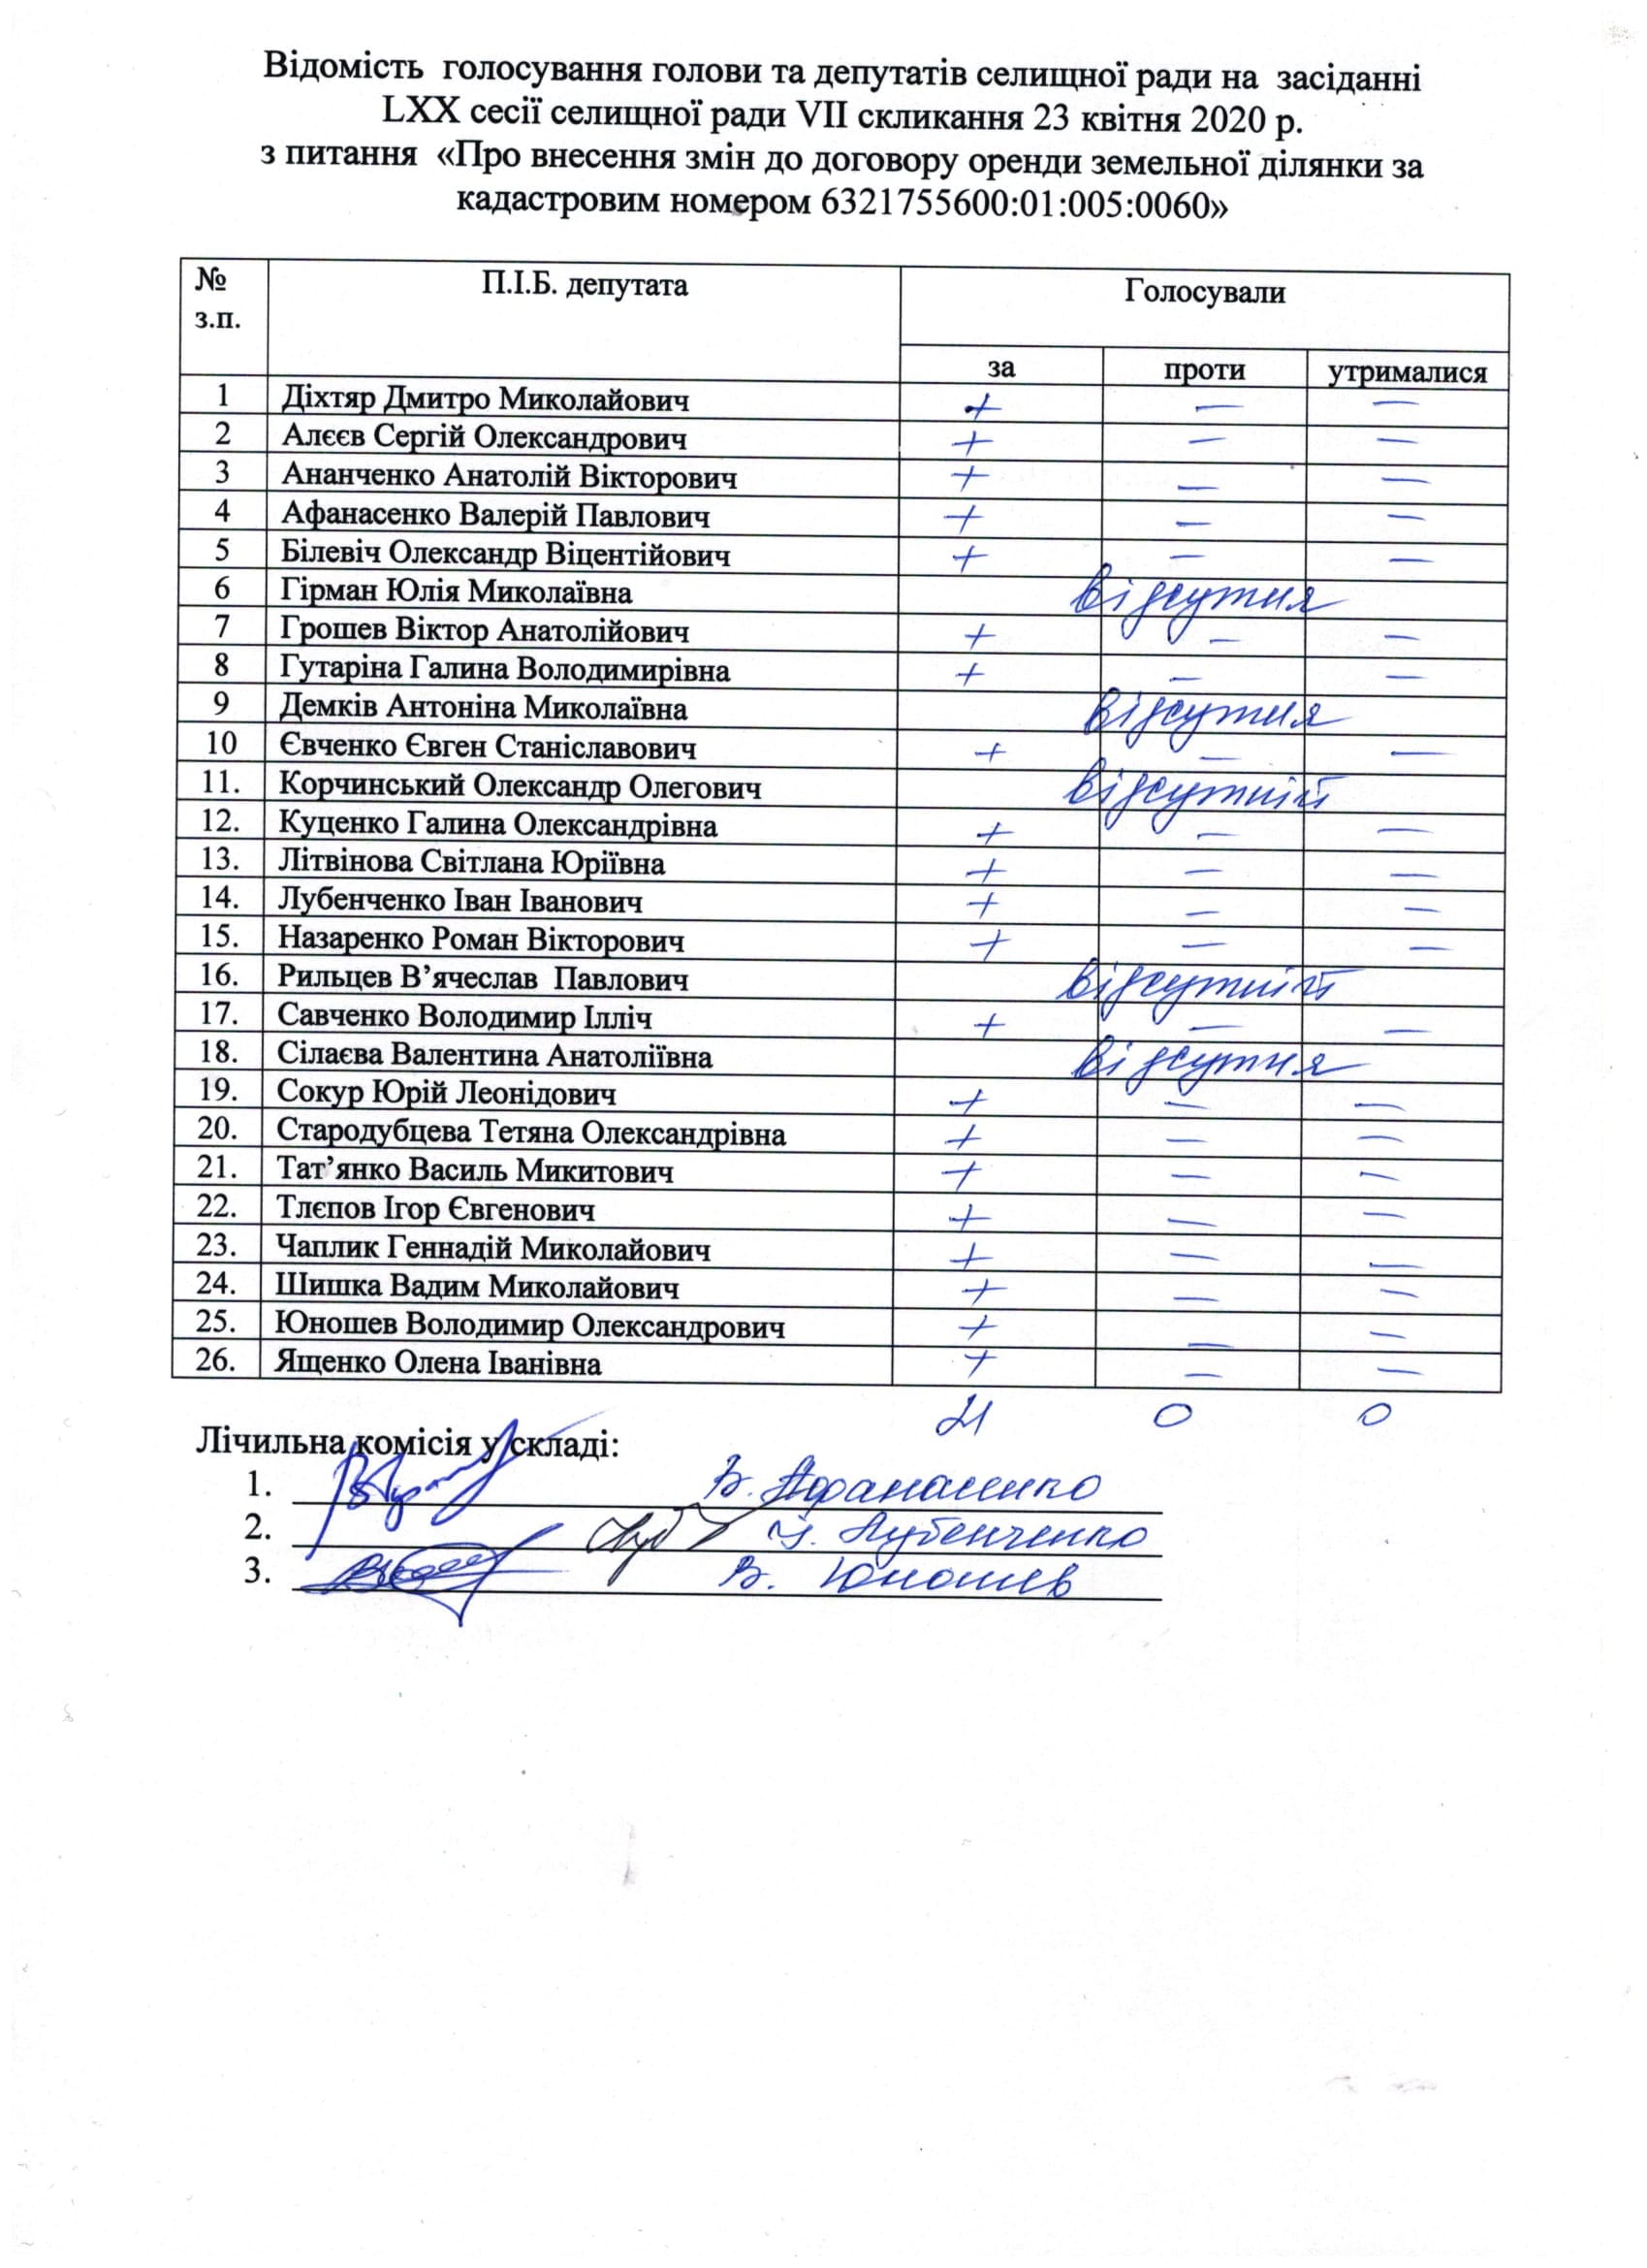 Відомість голосування голови та депутатів селищної ради на засіданні
LXX сесії селищної ради VII скликання 23 квітня 2020 р.
з питання «Про внесення змін до договору оренди земельної ділянки за
кадастровим номером 6321755600:01:005:0060»
№ з.п. П.І.Б. депутата Голосували
за проти утрималися
1 Діхтяр Дмитро Миколайович + — —
2 Алєєв Сергій Олександрович + — —
3 Ананченко Анатолій Вікторович + — —
4 Афанасенко Валерій Павлович + — —
5 Білевіч Олександр Віцентійович + — —
6 Гірман Юлія Миколаївна відсутня
7 Грошев Віктор Анатолійович + — —
8 Гутаріна Галина Володимирівна + — —
9 Демків Антоніна Миколаївна відсутня
10 Євченко Євген Станіславович + — —
11. Корчинський Олександр Олегович відсутній
12. Куценко Галина Олександрівна + — —
13. Літвінова Світлана Юріївна + — —
14. Лубенченко Іван Іванович + — —
15. Назаренко Роман Вікторович + — —
16. Рильцев В’ячеслав Павлович відсутній
17. Савченко Володимир Ілліч + — —
18. Сілаєва Валентина Анатоліївна відсутня
19. Сокур Юрій Леонідович + — —
20. Стародубцева Тетяна Олександрівна + — —
21. Тат’янко Василь Микитович + — —
22. Тлєпов Ігор Євгенович + — —
23. Чаплик Геннадій Миколайович + — —
24. Шишка Вадим Миколайович + — —
25. Юношев Володимир Олександрович + — —
26. Ященко Олена Іванівна + — —
21 0 0
Лічильна комісія у складі:
1. В. Афанасенко
2. І. Лубенченко
3. В. Юношев